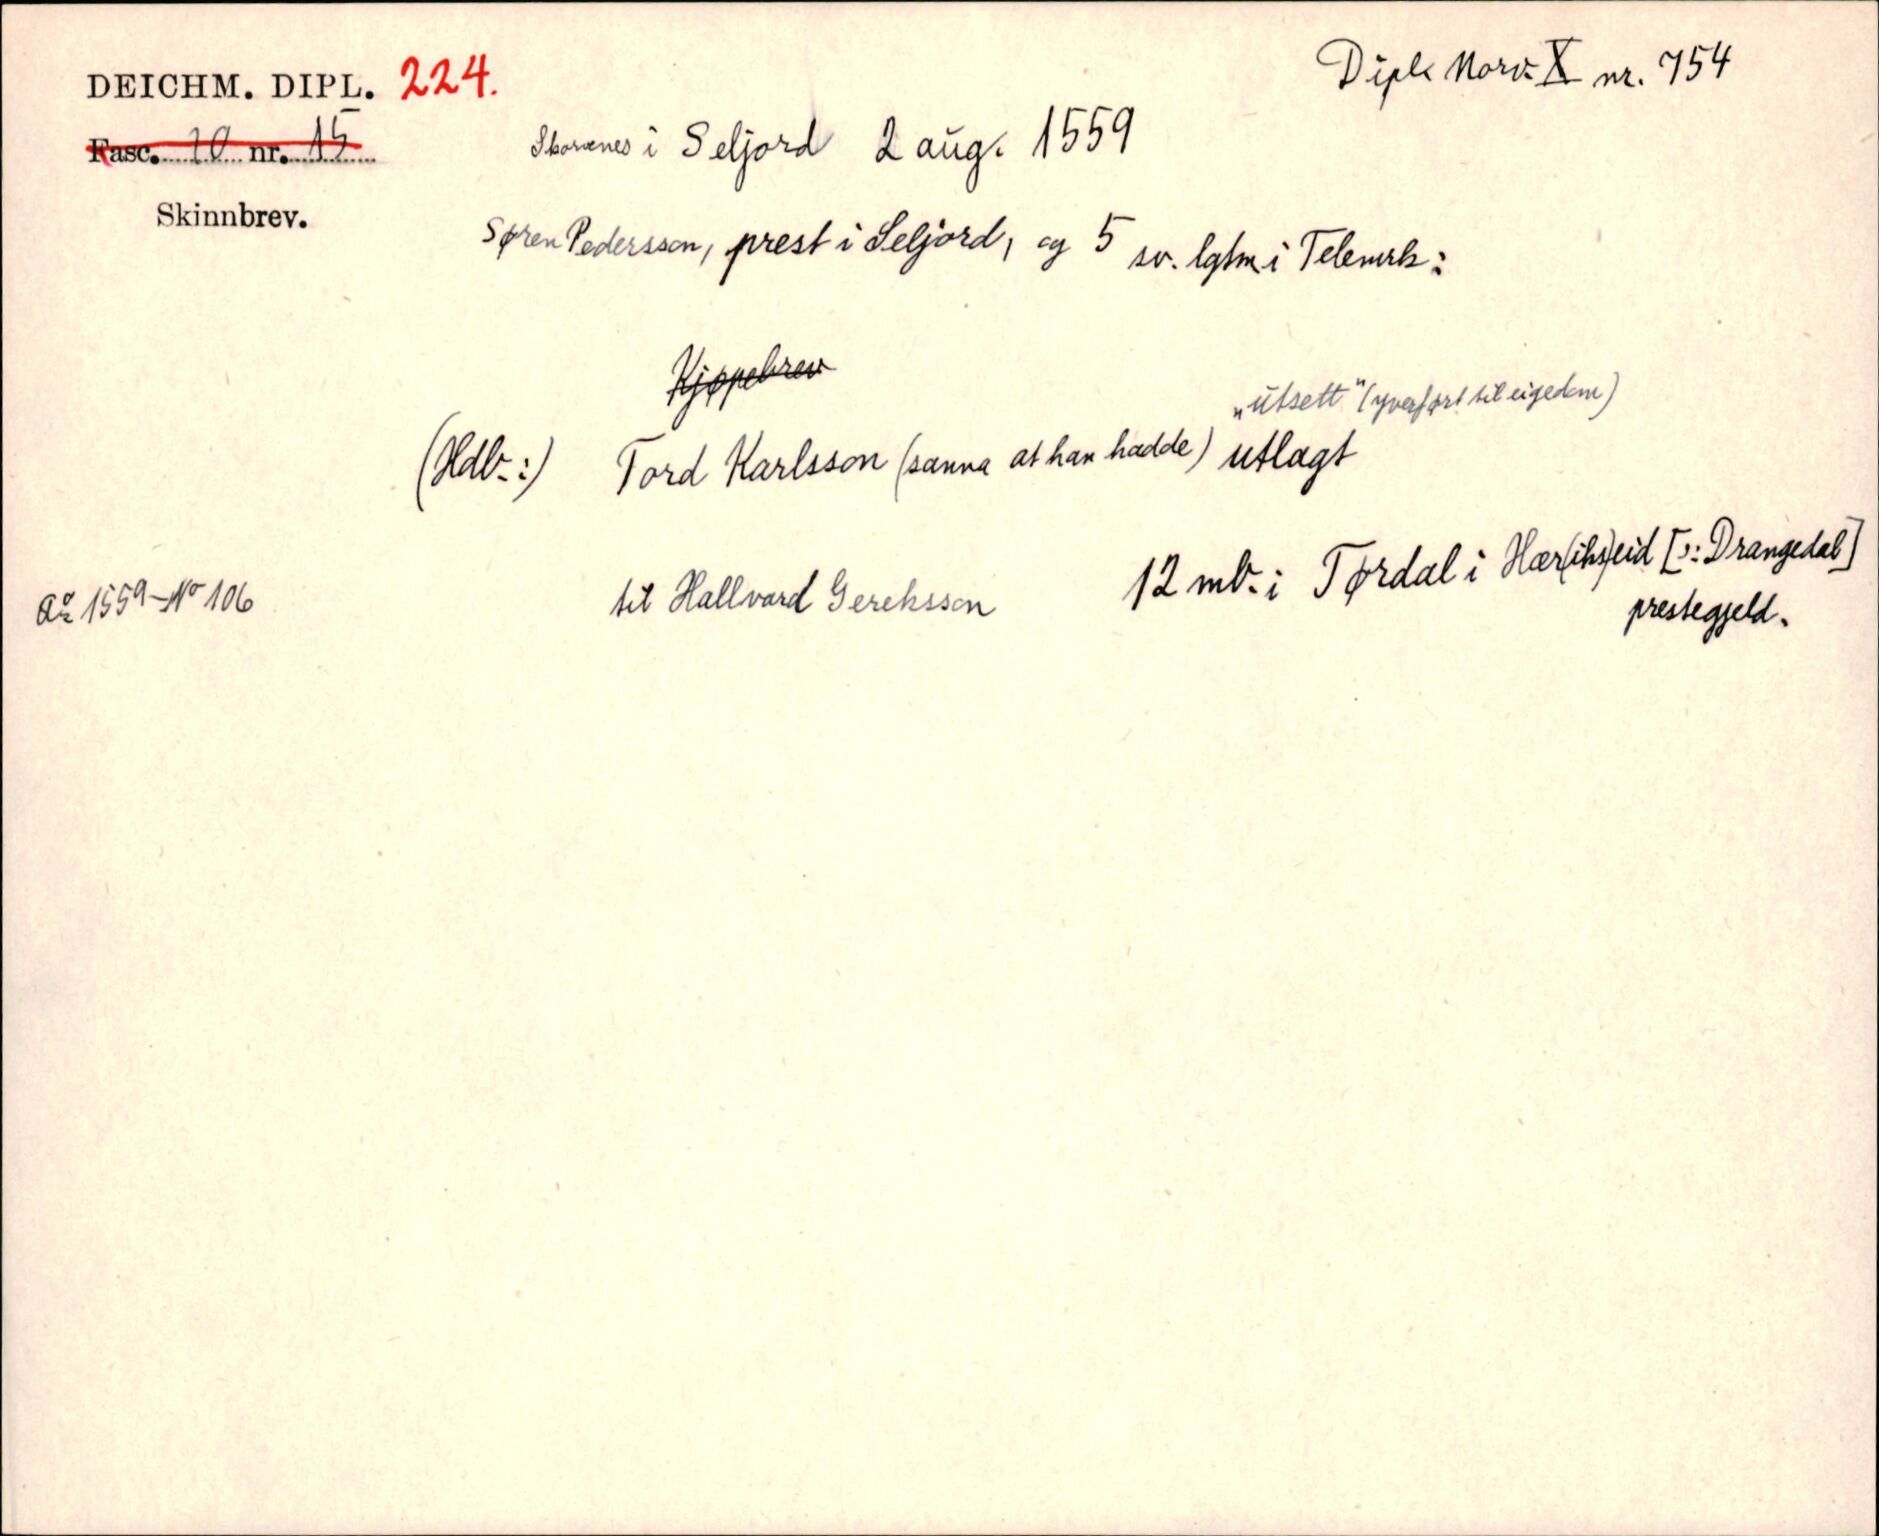 DEICHM. DIPL. 224.
Dipl. Norv. X nr. 754
Fasc. 10 nr. 15
Skorvenes i Seljord 2 aug. 1559
Skinnbrev.
Søren Pedersson, prest i Seljord, og 5 sv. lgtm i Telemrk:
Kjøpebrev
"utsett" (yverført til eigedom)
(Hdb.:) Tord Karlsson (sanna at han hadde) utlagt
Ao 1559 - No 106
til Hallvard Gereksson 12 mb. i Tørdal i Hær(iks)eid [ɔ: Drangedal]
prestegjeld.